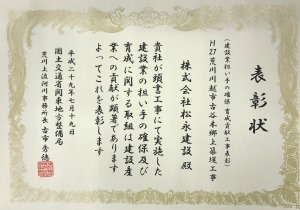 表彰状
(建設業担い手の確保・育成貢献工事表彰)
H27荒川川越市古谷本郷上築堤工事
株式会社松永建設 殿
貴社が頭書工事にて実施した
建設業の担い手の確保及び
育成に関する取組は建設産
業への貢献が顕著であります
よってこれを表彰します
平成二十九年七月十九日
国土交通省関東地方整備局
荒川上流河川事務所長 古市秀徳